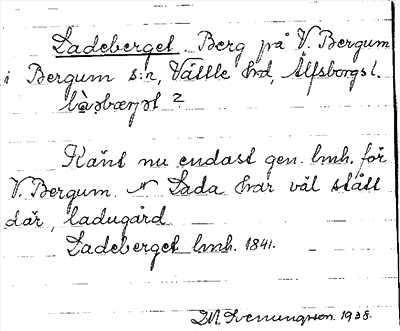 Ladeberget. Berg på V. Bergum
i Bergum s:n, Vättle hd, Älfsborgs l.
Känt nu endast gen. lmh. för
V. Bergum. Lada har väl stått
där, ladugård
Ladeberget lmh. 1841.
1938.